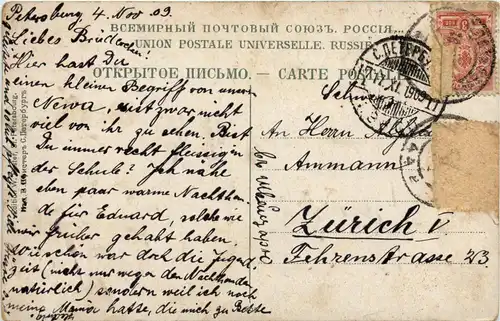 Petersburg 4. Nov. 09.
ВСЕМІРНЫЙ ПОЧТОВЫЙ СОЮЗЪ. РОССІЯ.
UNION POSTALE UNIVERSELLE. RUSSIE
ОТКРЫТОЕ ПИСЬМО. — CARTE POSTALE
Liebes Brüderchen!
Hier hast Du
einen kleinen Begriff von unserer
Newa, ist zwar nicht
viel von ihr zu sehen. Bist
Du immer recht fleissig in
der Schule? Ich nähe
eben paar warme Nachthem-
de für Eduard, solche wie
wir früher gehabt haben,
wie schön war doch die Jugend-
zeit (nicht nur wegen der Nachthemden
natürlich) sondern weil ich noch
meine Mama hatte, die mich zu Bette
С.ПЕТЕРБУРГ
XI 1909
An Herrn
Ammann
Zürich V
Fehrenstrasse 23.